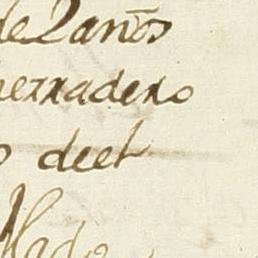 de 2 años
herradero
o deel
llado